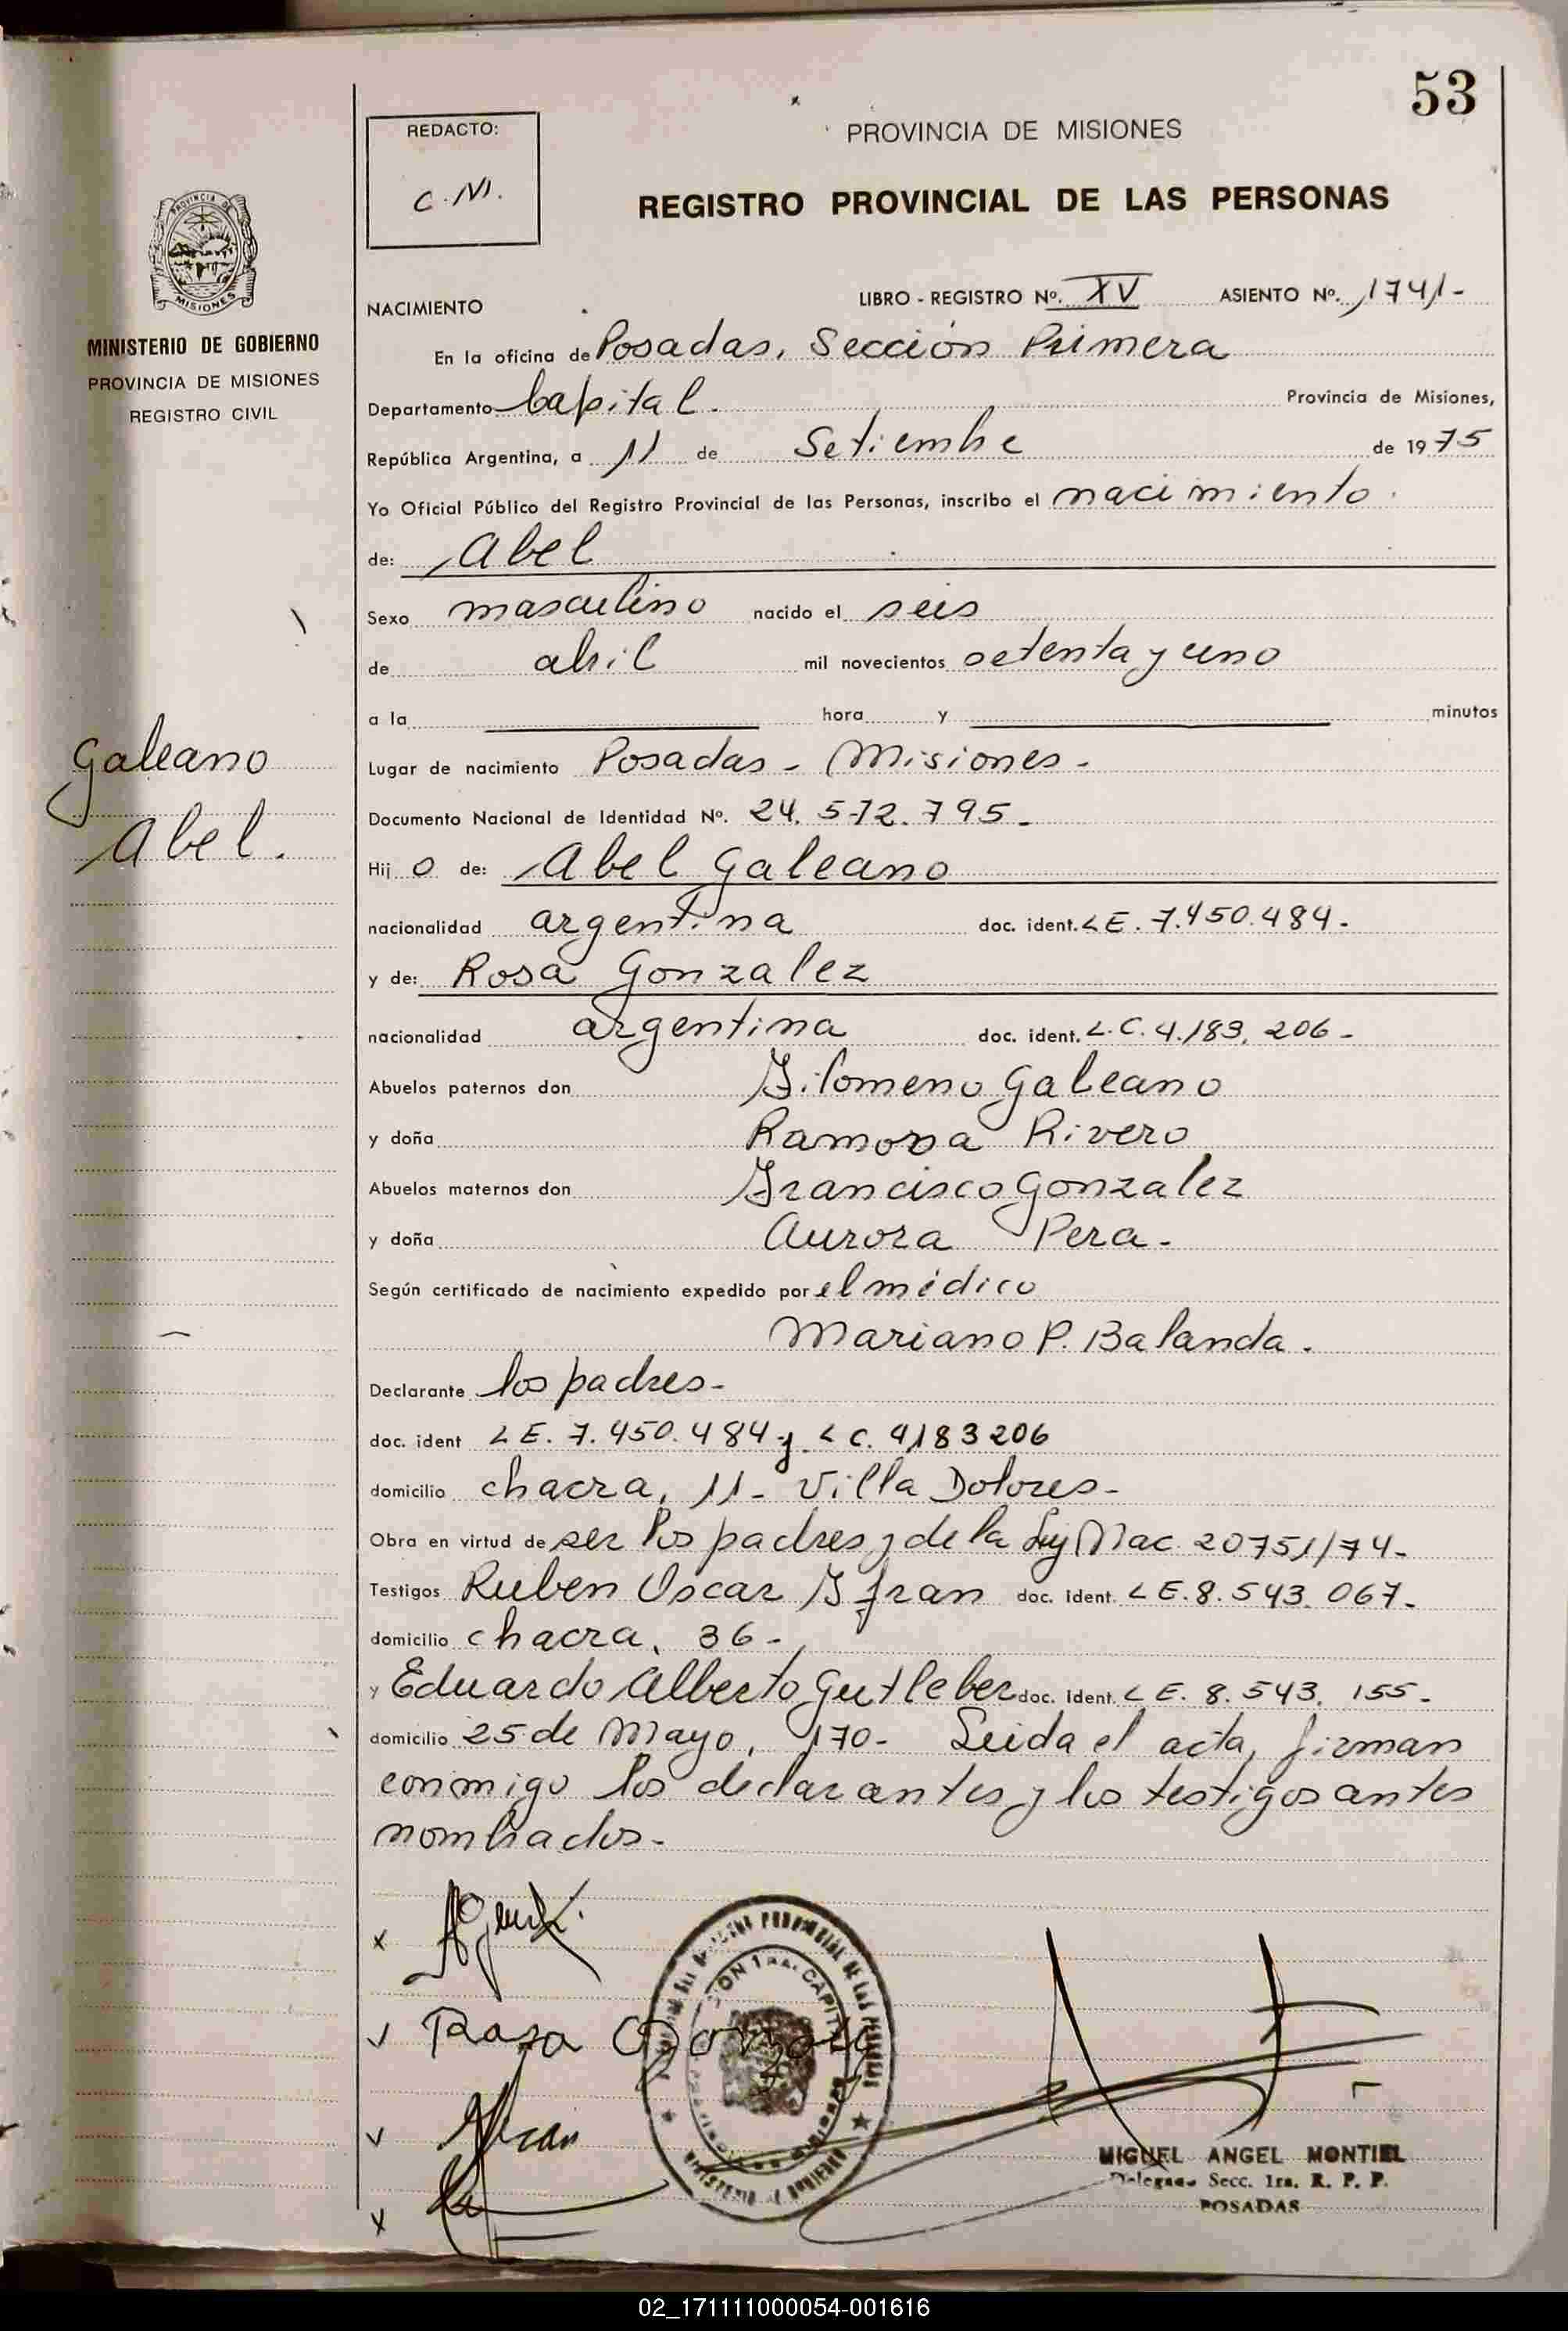 53
REDACTO:
C.M.
PROVINCIA DE MISIONES
REGISTRO PROVINCIAL DE LAS PERSONAS
PROVINCIA DE
MISIONES
MINISTERIO DE GOBIERNO
PROVINCIA DE MISIONES
REGISTRO CIVIL
NACIMIENTO LIBRO - REGISTRO Nº. XV ASIENTO Nº. 1741-
En la oficina de Posadas, Sección Primera
Departamento Capital. Provincia de Misiones,
República Argentina, a 11 de Setiembre de 1975
Yo Oficial Público del Registro Provincial de las Personas, inscribo el nacimiento.
de: Abel
Sexo masculino nacido el seis
de abril mil novecientos setenta y uno
a la hora y minutos
Galeano
Abel.
Lugar de nacimiento Posadas - Misiones -
Documento Nacional de Identidad Nº. 24.572.795-
Hij o de: Abel Galeano
nacionalidad argentina doc. ident. L E. 7.450.484-
y de: Rosa Gonzalez
nacionalidad argentina doc. ident. L.C. 4.183.206-
Abuelos paternos don Filomeno Galeano
y doña Ramona Rivero
Abuelos maternos don Francisco Gonzalez
y doña Aurora Pera-
Según certificado de nacimiento expedido por el médico
Mariano P. Balanda.
Declarante los padres-
doc. ident L E. 7.450.484 y L C. 4183206
domicilio chacra, 11- Villa Dolores-
Obra en virtud de ser los padres y de la Ley Nac 20751/74-
Testigos Ruben Oscar Ifran doc. ident. L E. 8.543.067-
domicilio chacra, 36-
y Eduardo Alberto Gutleber doc. ident. L E. 8.543.155-
domicilio 25 de Mayo, 170- Leida el acta, firman
conmigo los declarantes y los testigos antes
nombrados-
Rosa Gonzalez
MIGUEL ANGEL MONTIEL
Delegado Secc. 1ra. R. P. P.
POSADAS
02_171111000054-001616